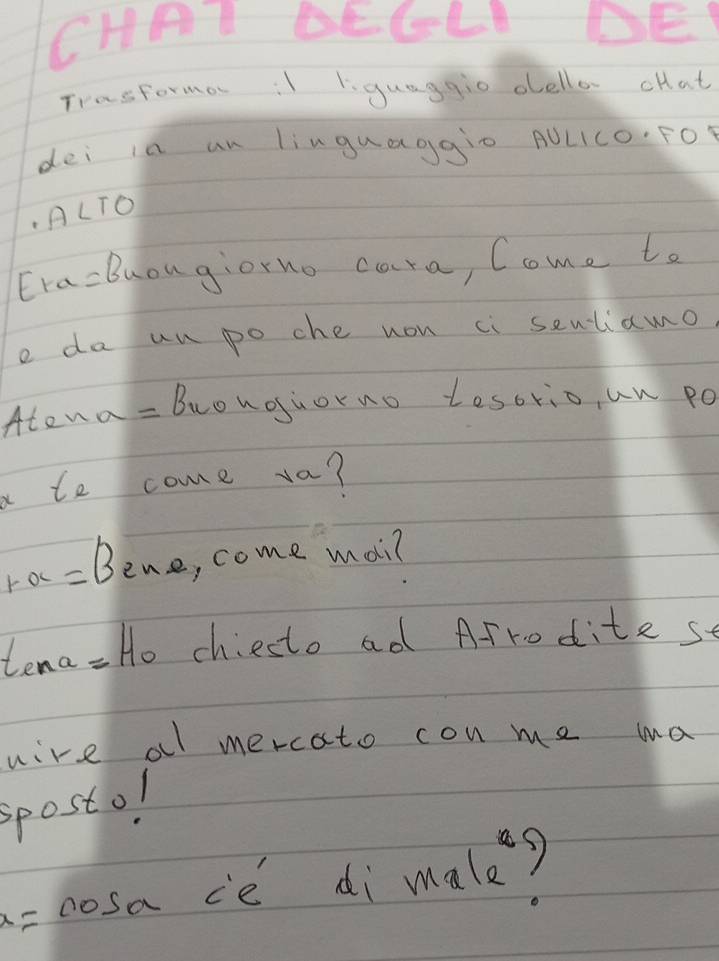 CHAT DEGLI DEI
Trasforma il liguaggio della cHat
dei in un linguaggio AULICO.FOR
.ALTO
Era=Buongiorno cara, Come te
e da un po che non ci sentiamo.
Atena=Buongiorno tesorio, un po
a te come va?
ra=Bene, come mai?
tena=Ho chiesto ad Afrodite se
nire al mercato con me ma
sposto!
a=cosa c'é di male?